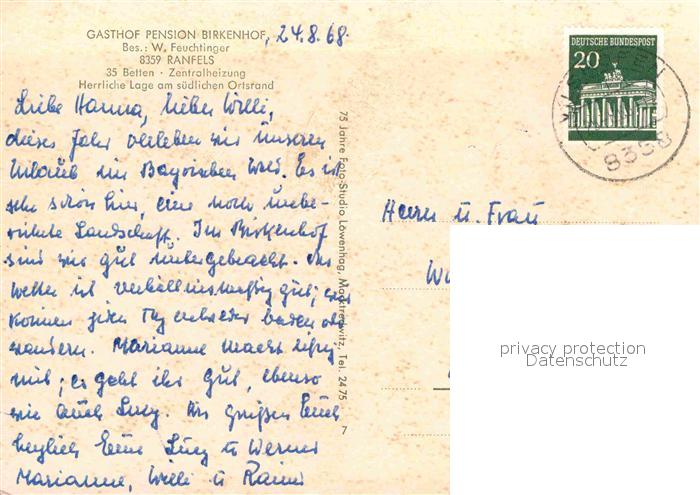 GASTHOF PENSION BIRKENHOF, 24.8.68.
Bes.: W. Feuchtinger
8359 RANFELS
35 Betten · Zentralheizung
Herrliche Lage am südlichen Ortsrand
Liebe Hanna, lieber Willi,
dieses Jahr verleben wir unseren
Urlaub im Bayrischen Wald. Es ist
sehr schön hier, eine noch unbe-
rührte Landschaft. Im Birkenhof
sind wir gut untergebracht. Das
Wetter ist verhältnismäßig gut; wir
können jeden Tag entweder baden oder
wandern. Marianne macht fleißig
mit; es geht ihr gut, ebenso
wie auch Lucy. Wir grüßen Euch
herzlich Eure Lucy u Werner
Marianne, Willi u Rainer
75 Jahre Foto-Studio Löwenhag, Marktredwitz, Tel. 2475
7
DEUTSCHE BUNDESPOST
20
8358
Herrn u. Frau
privacy protection
Datenschutz